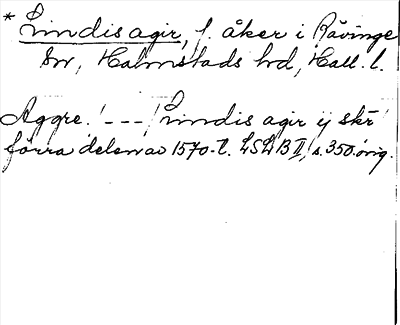 * Lindis agir, f. åker i Rävinge
sn, Halmstads hd, Hall. l.
Aggre. ! --- / Lindis agir ij skr
förra delen av 1570-t. LSLB II, s. 350. orig.